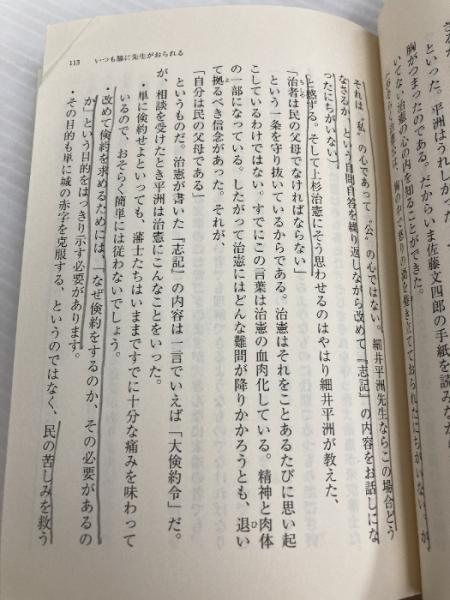 113 いつも脇に先生がおられる
といった。平洲はうれしかっ
胸がつまったのである。だからいま佐藤文四郎の手紙を読みなが
いてない治憲の心の内を知ることができた。
それは〝私〟の心であって〝公〟の心ではない。細井平洲先生ならこの場合どう
なさるか、という自問自答を繰り返しながら改めて『志記』の内容をお話しにな
ったにちがいない」
と感ずる。そして上杉治憲にそう思わせるのはやはり細井平洲が教えた、
「治者は民の父母でなければならない」
という一条を守り抜いているからである。治憲はそれをことあるたびに思い起
こしているわけではない。すでにこの言葉は治憲の血肉化している。精神と肉体
の一部になっている。したがって治憲にはどんな難問が降りかかろうとも、退い
て拠るべき信念があった。それが、
「自分は民の父母である」
というものだ。治憲が書いた『志記』の内容は一言でいえば「大倹約令」だ。
が、相談を受けたとき平洲は治憲にこんなことをいった。
・単に倹約せよといっても、藩士たちはいままですでに十分な痛みを味わって
いるので、おそらく簡単には従わないでしょう。
・改めて倹約を求めるためには、「なぜ倹約をするのか、その必要があるの
か」という目的をはっきり示す必要があります。
・その目的も単に城の赤字を克服する、というのではなく、民の苦しみを救う